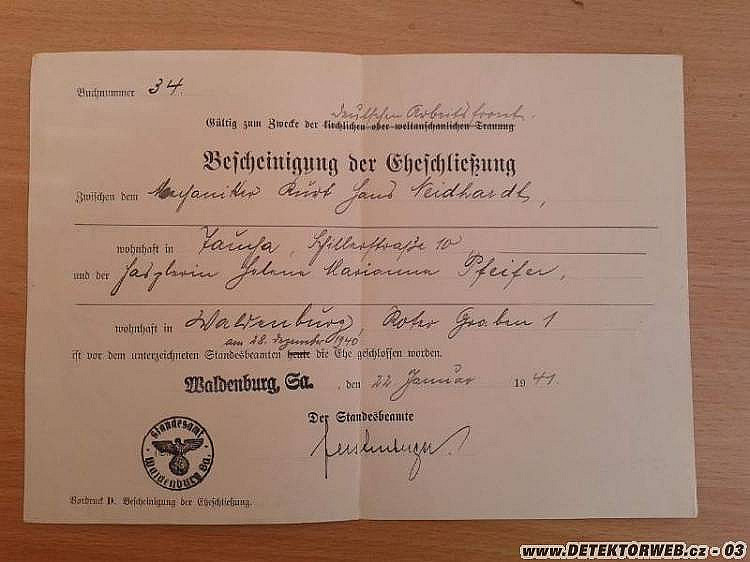 Buchnummer 34.
deutschen Arbeitsfront.
Gültig zum Zwecke der kirchlichen oder weltanschaulichen Trauung
Bescheinigung der Eheschließung
Zwischen dem Mechaniker Kurt Hans Neidhardt,
wohnhaft in Taucha, Schillerstraße 10
und der Helene Marianna Pfeifer,
wohnhaft in Waldenburg, Roter Graben 1
am 28. Dezember 1940
ist vor dem unterzeichneten Standesbeamten heute die Ehe geschlossen worden.
Waldenburg, Sa., den 22. Januar 1941.
Der Standesbeamte
Standesamt
Waldenburg Sa.
Vordruck D. Bescheinigung der Eheschließung.
www.DETEKTORWEB.cz - 03